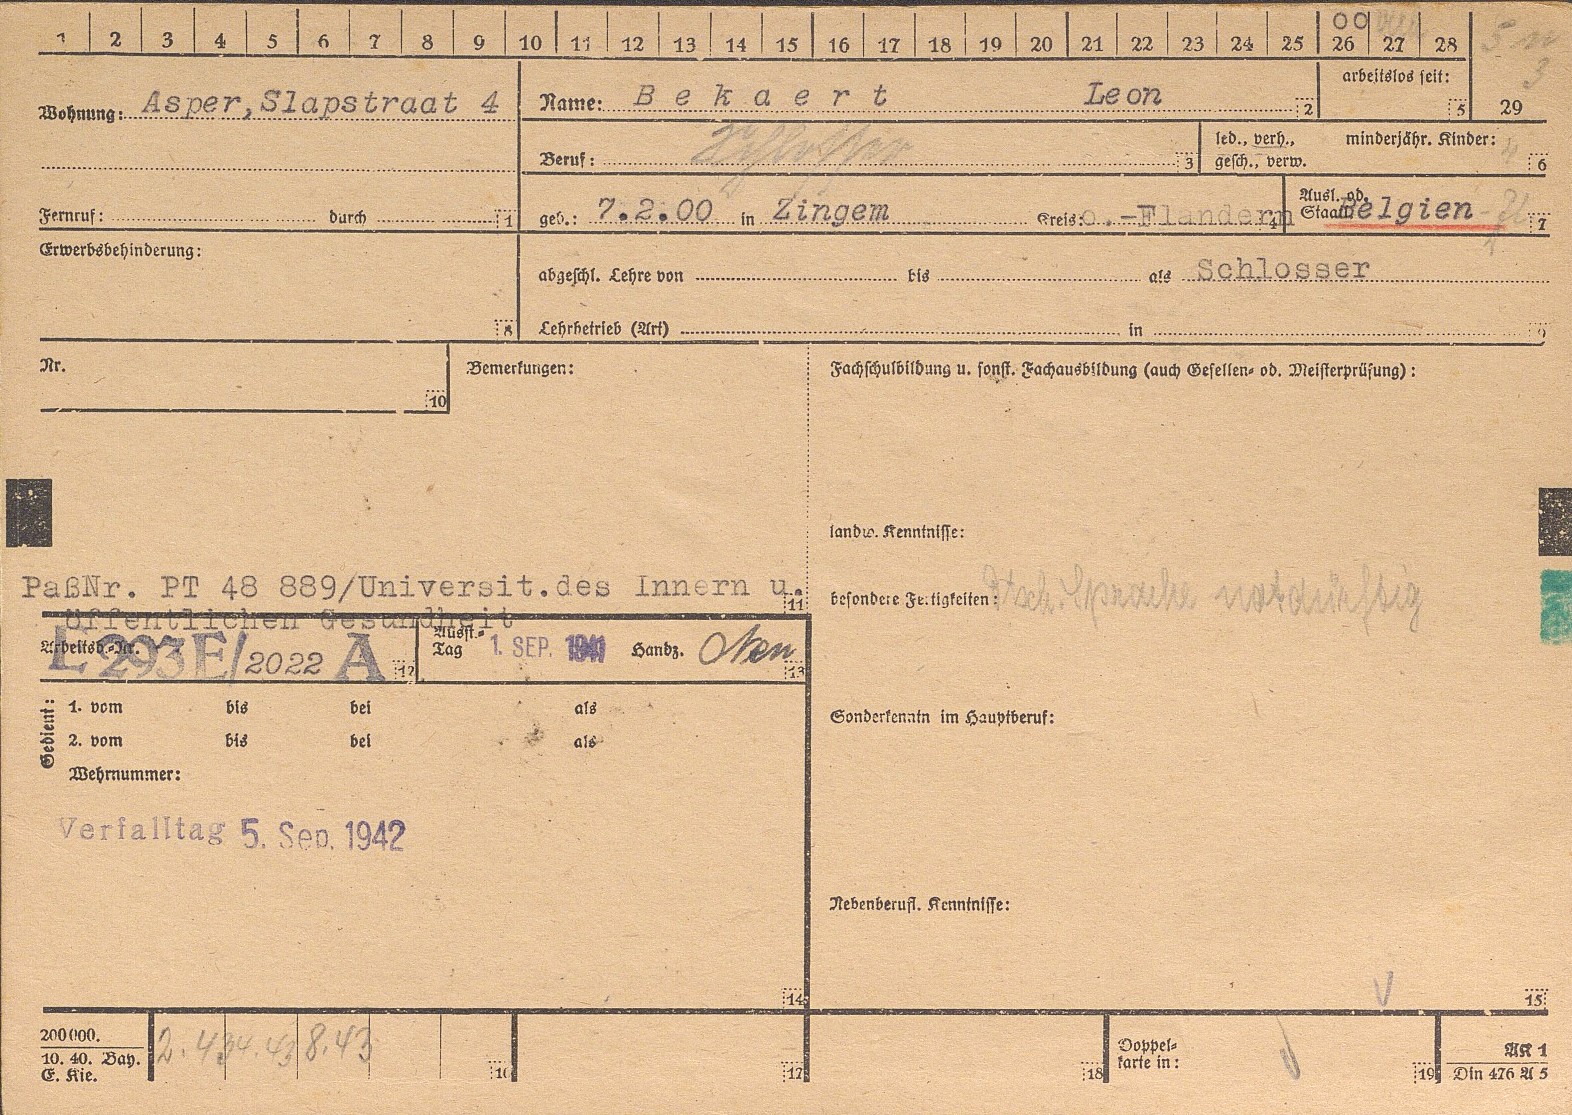 1 2 3 4 5 6 7 8 9 10 11 12 13 14 15 16 17 18 19 20 21 22 23 24 25 26 27 28
Wohnung: Asper, Slapstraat 4
Name: Bekaert Leon 2
arbeitslos seit: 5
29
Beruf: Schlosser 3
led., verh., gesch., verw.
minderjähr. Kinder: 4 6
Fernruf: durch 1
geb.: 7.2.00 in Zingem Kreis: o.-Flandern 4
Ausl. od. Staatl. Belgien 7
Erwerbsbehinderung: 8
abgeschl. Lehre von bis als Schlosser
Lehrbetrieb (Art) in 9
Nr. 10
Bemerkungen:
Fachschulbildung u. sonst. Fachausbildung (auch Gesellen- od. Meisterprüfung):
landw. Kenntnisse:
PaßNr. PT 48 889/Universit.des Innern u.
öffentlichen Gesundheit 11
besondere Fertigkeiten: Dtsch. Sprache notdürftig
Arbeitsb.-Nr. L 293E/2022 A 12
Ausst.-Tag 1. SEP. 1941 Handz. 13
Gedient:
1. vom bis bei als
2. vom bis bei als
Sonderkenntn im Hauptberuf:
Wehrnummer:
Verfalltag 5. Sep. 1942
Nebenberufl. Kenntnisse:
14 15
200000.
10. 40. Bay.
E. Kie.
2.43 4.43 8.43 16
17 18
Doppel-
karte in: 19
AK 1
Din 476 A 5